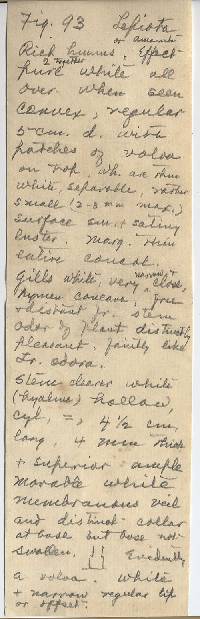 Fig. 93 Lepiota
or amanita
Rich humus. Effect
2 together
pure white all
over when seen
convex, regular
5 cm. d. with
patches of volva
on top wh. are thin
white, separable, rather
small (2-3 mm max.)
surface sm. + satiny
luster. Marg. thin
entire concol.
Gills white, very narrow + close,
hymen concave, free
+ distant fr. stem
odor of plant distinctly
pleasant, faintly like
Tr. odora.
Stem clearer white
(hyaline) hollow,
cyl, =, 4 1/2 cm,
long 4 mm thick
+ superior ample
movable white
membranous veil
and distinct collar
at base but base not
swollen. Evidently
a volva. White
+ narrow regular lip
or offset.